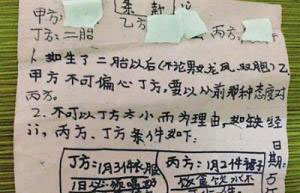 条款
甲方: 乙方 丙方:
丁方: 二胎
1. 如生了二胎以后(不论男女龙凤,双胞)乙
甲方不可偏心丁方,要以从前那种态度对
丙方。
2. 不可以丁方太小而为理由,
丙方、丁方条件如下:
丁方:1月3件衣服
丙方:1月2件裙子
日期: